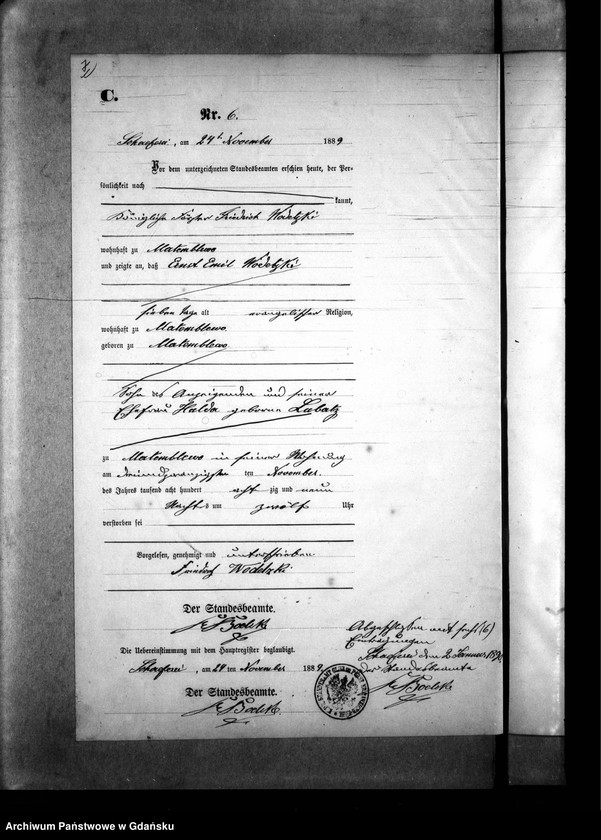 C.
Nr. 6.
Schaeferei, am 24t November 1889
Vor dem unterzeichneten Standesbeamten erschien heute, der Per-
sönlichkeit nach
kannt,
Königliche Förster Friedrich Wodetzki
wohnhaft zu Matemblewo
und zeigte an, daß Ernst Emil Wodetzki
sieben Tage alt evangelischer Religion,
wohnhaft zu Matemblewo
geboren zu Matemblewo
Sohn des Anzeigenden und seiner
Ehefrau Hulda geborne Labatz
zu Matemblewo in seiner Wohnung
am ten November
des Jahres tausend acht hundert acht zig und neun
Nachts um zwölf Uhr
verstorben sei
Vorgelesen, genehmigt und unterschrieben
Friedrich Wodetzki
Der Standesbeamte.
Die Uebereinstimmung mit dem Hauptregister beglaubigt.
Schaeferei, am 24ten November 1889.
Der Standesbeamte.
Abgeschlossen mit sechs (6)
Eintragungen
Schaeferei den 2 Januar 1890
Der Standesbeamte
Archiwum Państwowe w Gdańsku